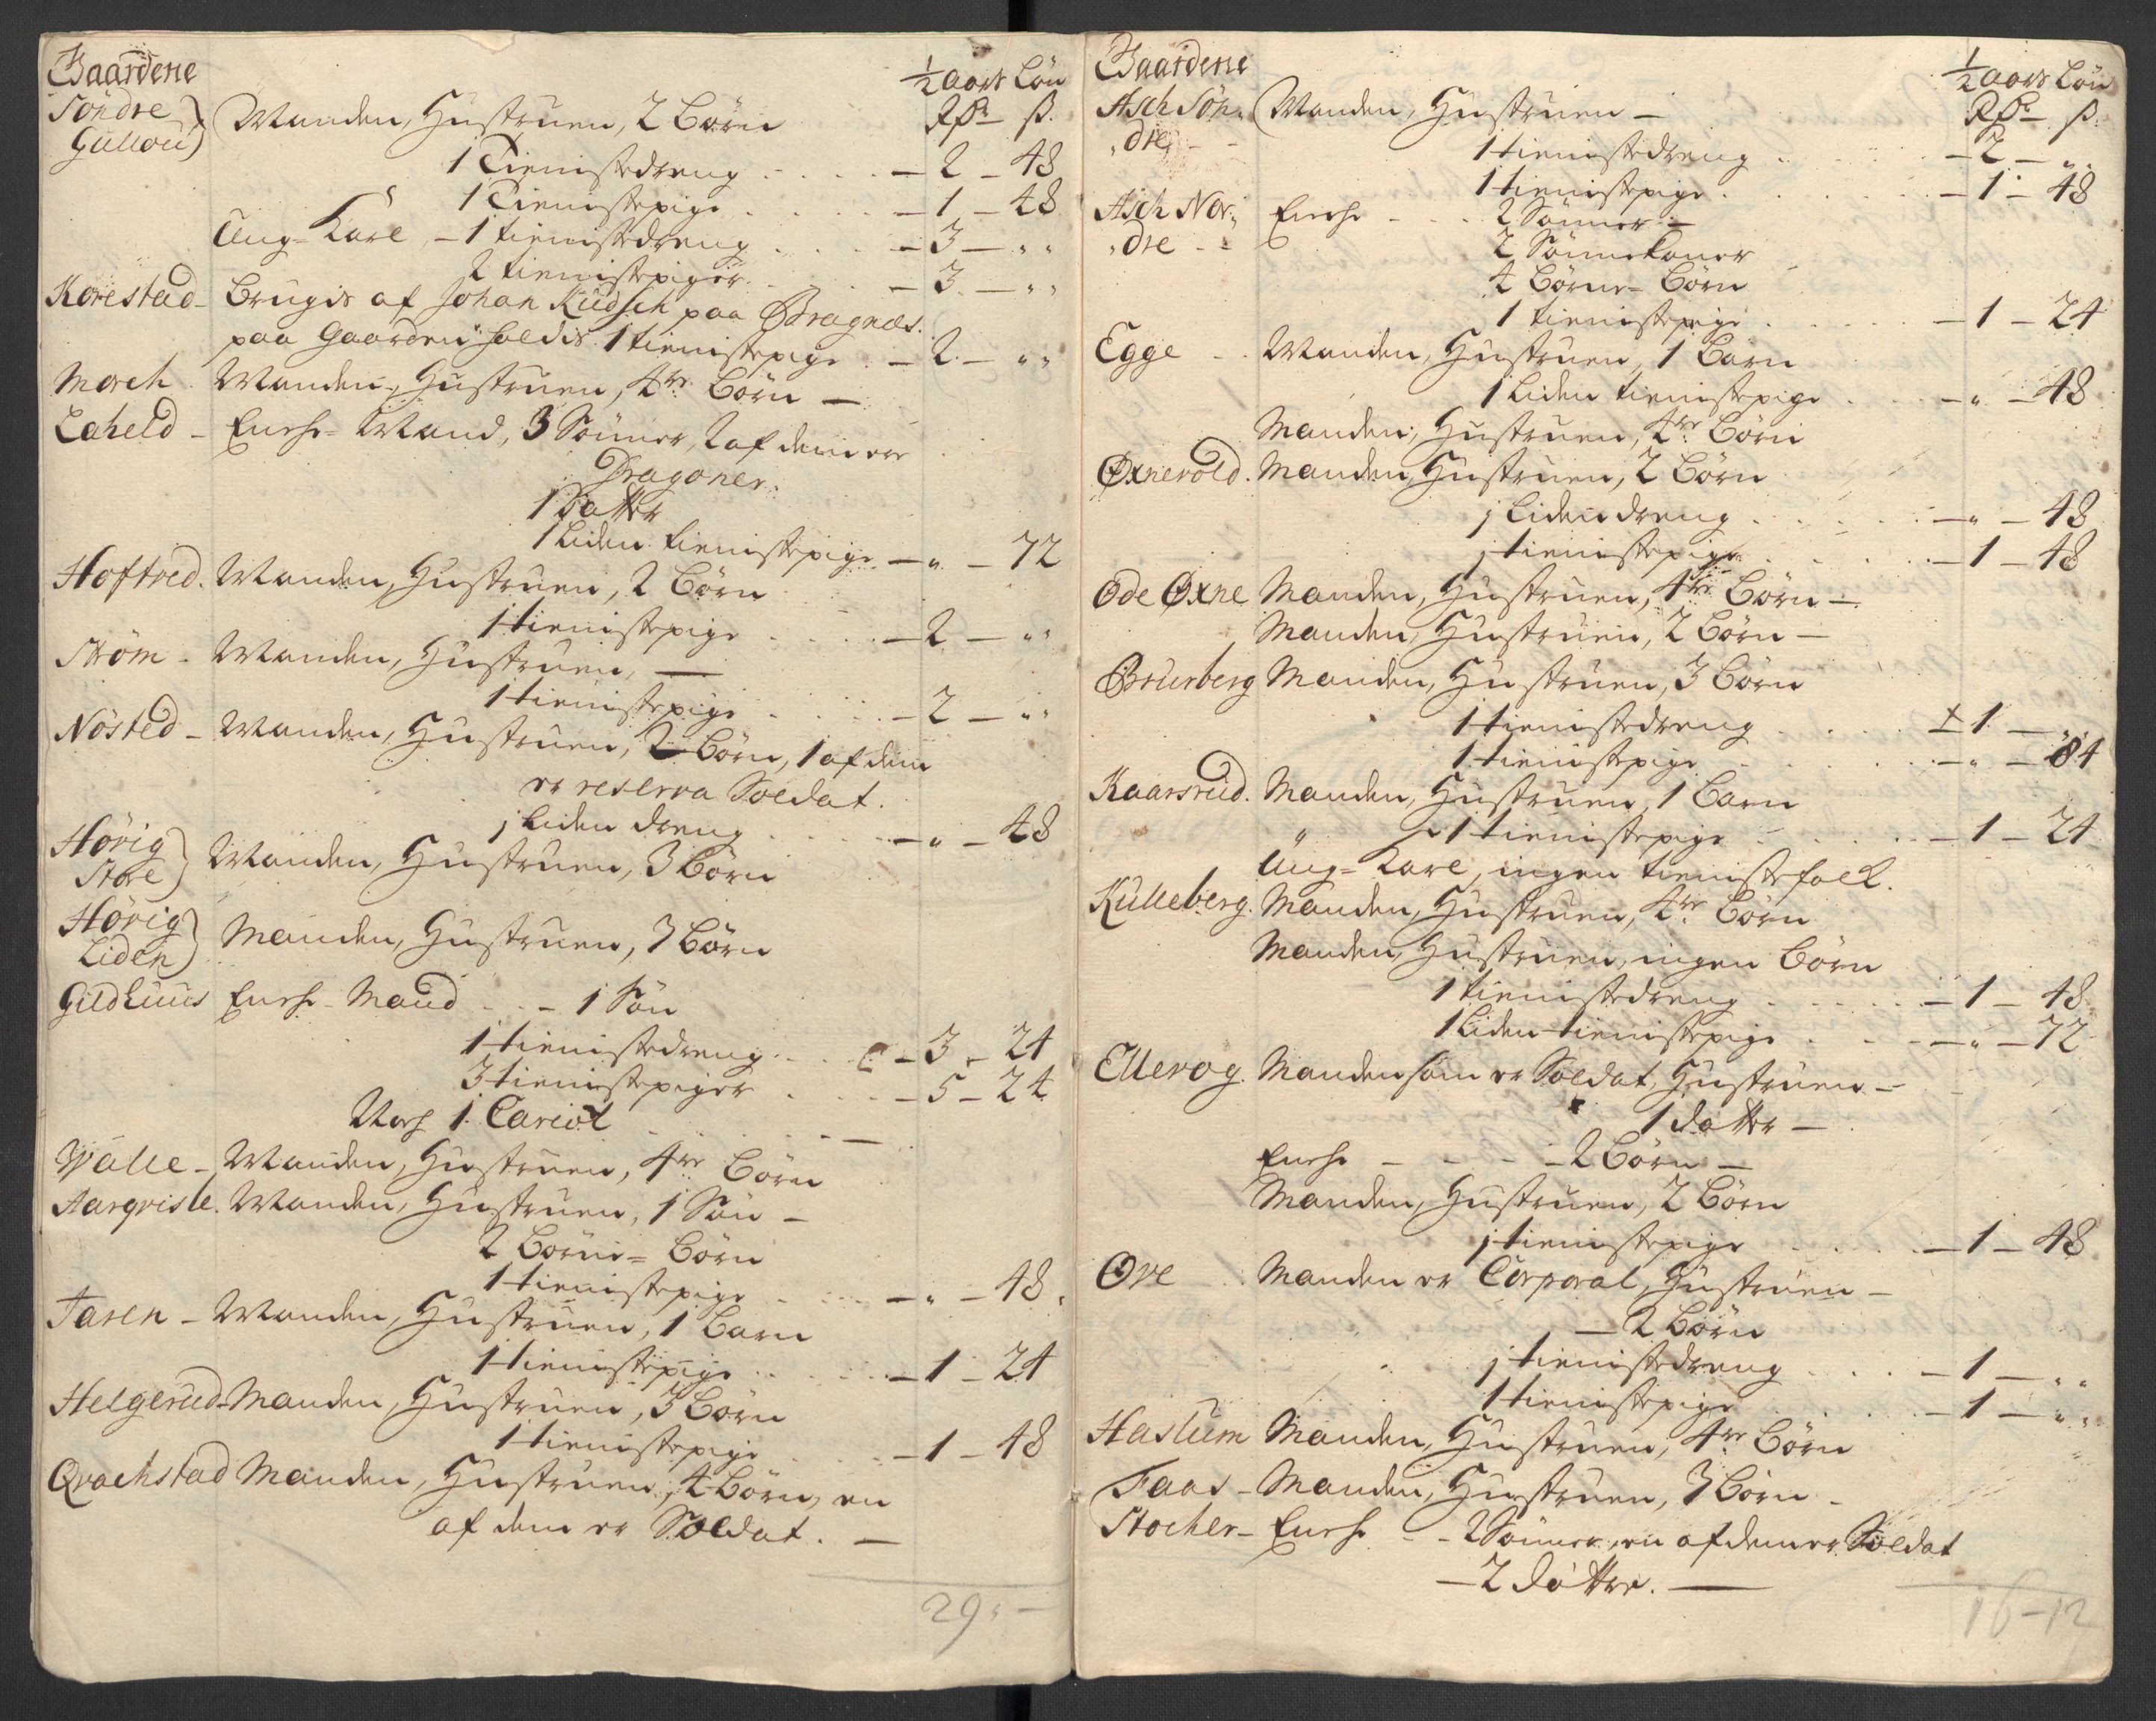 Gaardene
½ aars Løn
Søndre
Gullou) Manden, Hustruen, 2 Børn
Rdr ß.
1 Tienistedreng – 2 – 48
1 Tienistepige – 1 – 48
Ung-Karl – 1 tienistedreng – 3 – „
2 tienistepiger – 3 – „
Korestad – Brugis af Johan Kudsch paa Bragnæs.
paa Gaarden holdis 1 tienistepige – 2 – „
Morch Manden, Hustruen, 4re Børn –
Laheld – Enche-Mand, 3 Sønner, 2 af dem er
Dragoner.
1 Datter
1 liden tienistepige – „ – 72
Hoftved. Manden, Hustruen, 2 Børn
1 tienistepige – 2 – „
Strøm – Manden, Hustruen, –
1 tienistepige – 2 – „
Nøsted – Manden, Hustruen, 2 Børn, 1 af dem
er reserva Soldat.
1 liden dreng – „ – 48
Hørig
Store) Manden, Hustruen, 3 Børn
Hørig
Liden) Manden, Hustruen, 3 Børn
Gildhuus Enche-Mand – 1 Søn
1 tienistedreng – 3 – 24
3 tienistepiger – 5 – 24
Noch 1 Cariol –
Valle – Manden, Hustruen, 4re Børn
Aarqvisle. Manden, Hustruen, 1 Søn –
2 Børne-Børn
1 tienistepige – „ – 48
Taren – Manden, Hustruen, 1 Barn
1 tienistepige – 1 – 24
Helgerud – Manden, Hustruen, 3 Børn
1 tienistepige – 1 – 48
Qvachstad Manden, Hustruen, 4 Børn, en
af dem er Soldat. –
29 „ –
Gaardene
½ aars Løn
Asch Søn- Manden, Hustruen –
Rdr ß.
dre
1 tienistedreng – 2 – „
1 tienistepige – 1 – 48
Asch Nor- Enche – 2 Sønner –
dre – 2 Sønnekoner
4 Børne-Børn
1 tienistepige – 1 – 24
Egge – Manden, Hustruen, 1 Barn
1 liden tienistepige – „ – 48
Manden, Hustruen, 4re Børn
Øxnevold. Manden, Hustruen, 2 Børn
1 liden dreng – „ – 48
1 tienistepige – 1 – 48
Øde Øxne Manden, Hustruen, 4re Børn –
Manden, Hustruen, 2 Børn –
Brurberg Manden, Hustruen, 3 Børn
1 tienistedreng – 1 – „
1 tienistepige – „ – 84
Kaarsrud. Manden, Hustruen, 1 Barn
„ 1 tienistepige – 1 – 24
Ung-Karl, ingen tienistefolk.
Kulleberg. Manden, Hustruen, 4re Børn
Manden, Hustruen, ingen Børn
1 tienistedreng – 1 – 48
1 liden tienistepige – „ – 72
Ellevog. Manden som er Soldat, Hustruen –
1 datter –
Enche – – 2 Børn –
Manden, Hustruen, 2 Børn
1 tienistepige – 1 – 48
Ove Manden er Corporal, Hustruen –
– 2 Børn
1 tienistedreng – 1 – „
1 tienistepige – 1 – „
Haslum Manden, Hustruen, 4re Børn
Faas – Manden, Hustruen, 3 Børn –
Stocher – Enche – 2 Sønner, en af dem er Soldat
– 2 døttre. –
16 – 12